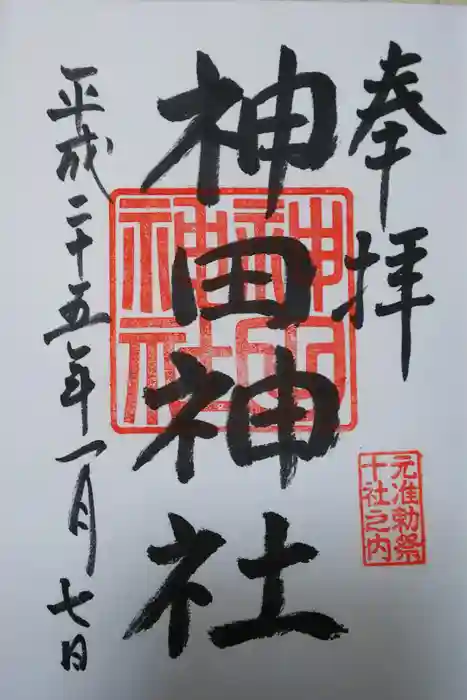 奉拝
神田神社
平成二十五年一月七日
神田神社
元准勅祭
十社之内